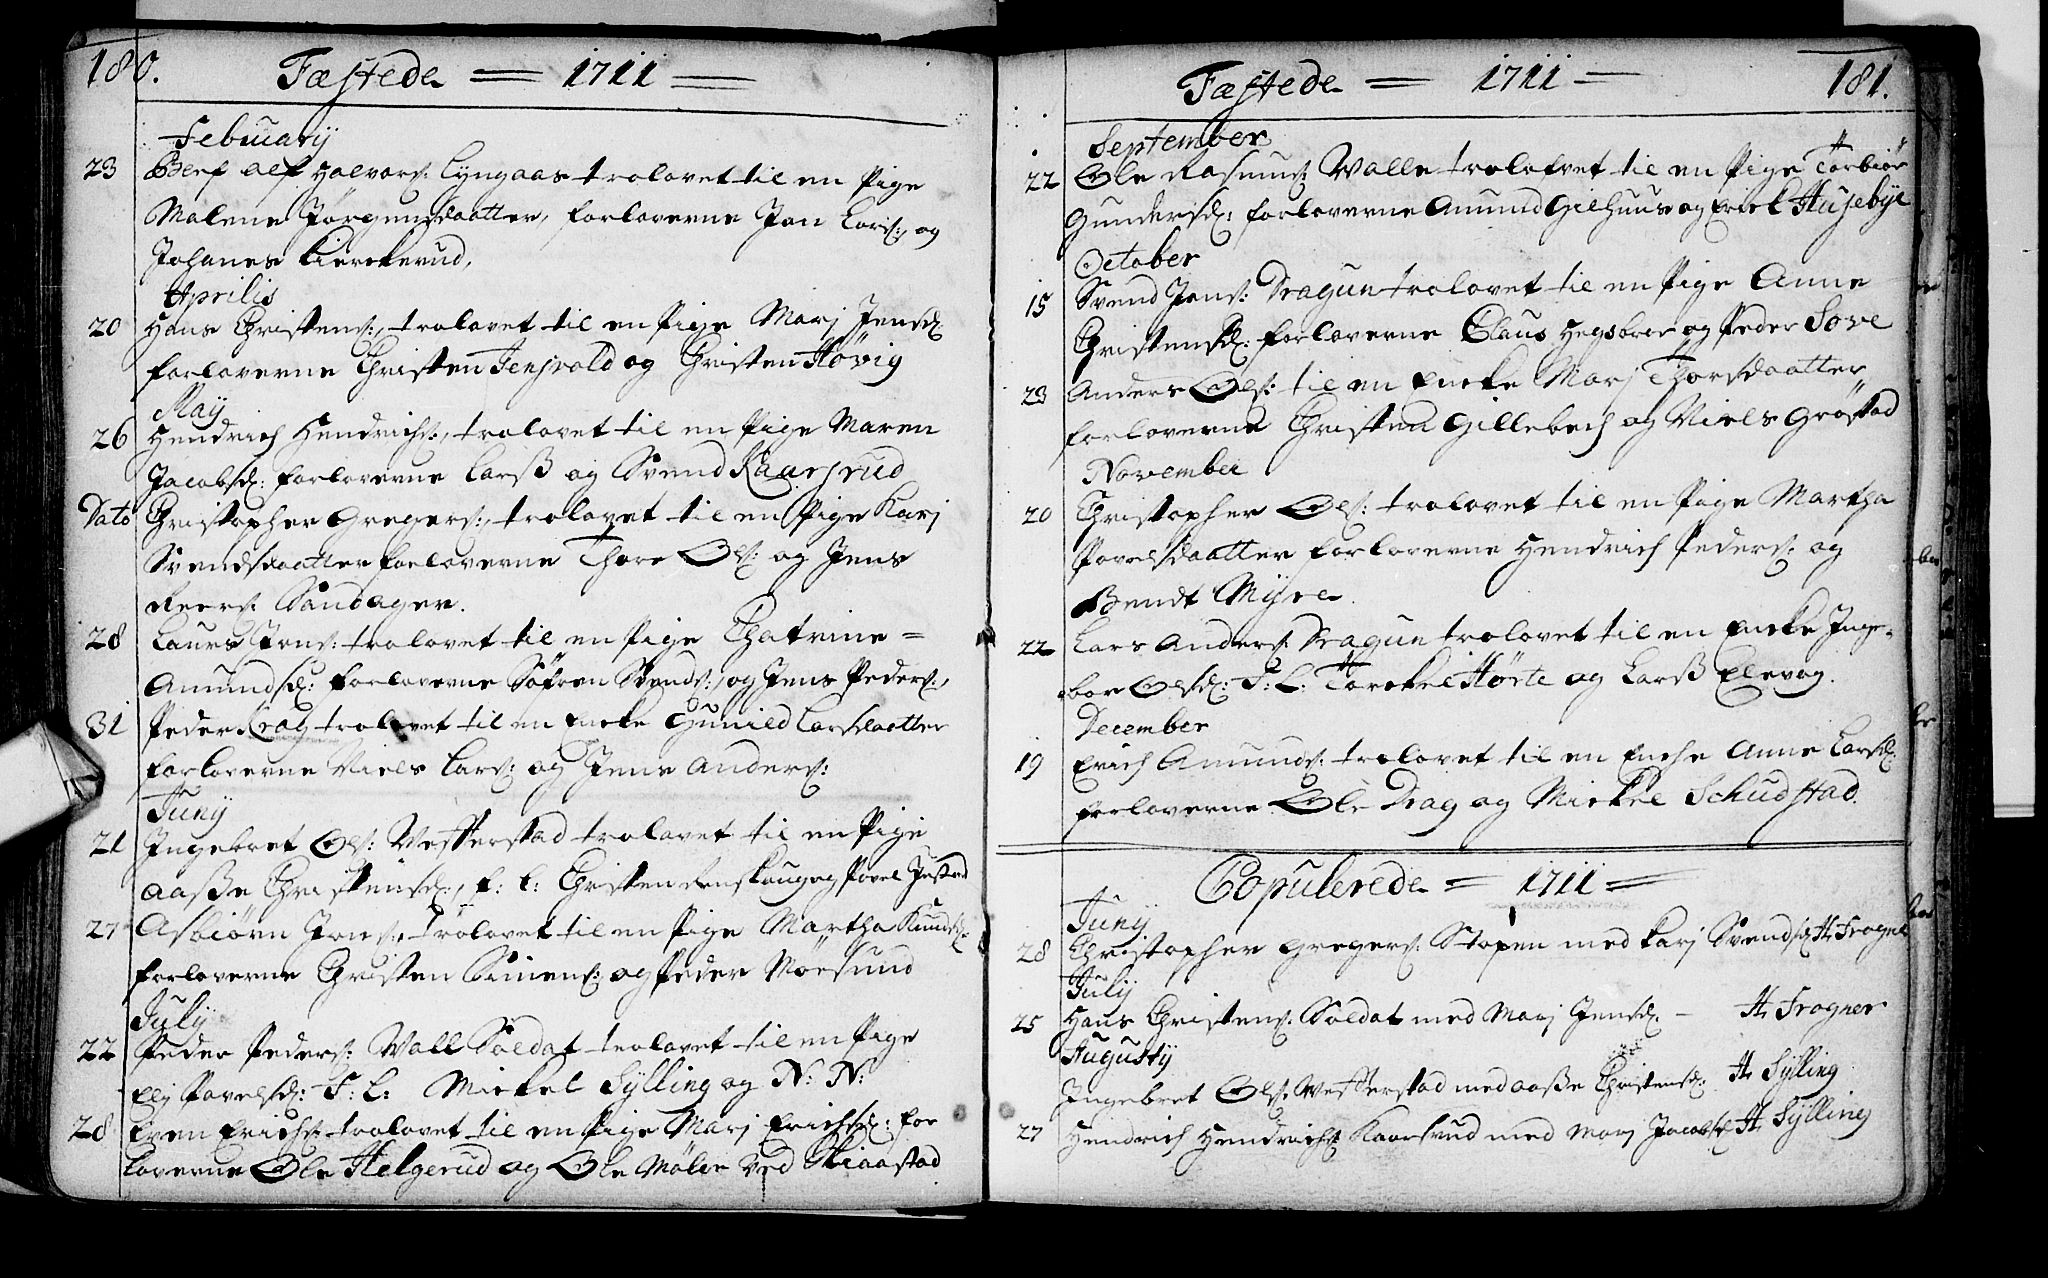 180.
Fæstede = 1711 =
Februarij
23 Alf Halvors: Lyngaas trolovet til en Pige
Malene Jörgensdaatter, forloverne Jon Lars:, og
Johanes Kierckerud,
Aprilis
20 Hans Christens:, trolovet til en Pige Marj Jensd:
forloverne Christen Jensvold og Christen Høvig
May
26 Hendrich Hendrichs:, trolovet til en Pige Maren
Jacobsd: forloverne Larß og Svend Kaarsrud
Dato Christopher Gregers:, trolovet til en Pige Karj
Svendsdaatter forloverne Thore Ols: og Jens
Peers: Sandager.
28 Laurs Jens: trolovet til en Pige Chatrine =
Amundsd: forloverne Söfren Svends:, og Jens Peders:,
31 Peder Krag trolovet til en Encke Gunild Larsdaatter
forloverne Niels Lars: og Jens Anders:
Juny
21 Ingebret Ols: Vefferstad trolovet til en Pige
Aaße Christensd:, f: l: Christen Renskoug og Povel Justad
27 Asbiörn Jens:, trolovet til en Pige Martha Knudsd:
forloverne Christen Simens: og Peder Morsund
July
22 Peder Peders: Wall Soldat trolovet til en Pige
Elj Povelsd: F: L: Mickel Sylling og N: N:
28 Even Erichs: trolovet til en Pige Marj Erichsd: for
loverne Ole Helgerud og Ole Möller ved Skiaastad
Fæstede = 1711 — 181.
September
22 Ole Rasmus: Walle trolofvet til en Pige Torbiör
Gundersd: forloverne Amund Gilhuus og Erick Husebye
October
15 Svend Jens: Dragun trolovet til en Pige Anne
Christensd: forloverne Claus Hegsbroe og Peder Sove
23 Anders Ols: til en Encke Marj Thorsdaatter
forloverne Christen Gillebech og Niels Gröstad
November
20 Christopher Ols: trolovet til en Pige Martha
Povelsdaatter forloverne Hendrich Peders: og
Bendt Myre.
22 Lars Anders: Dragun trolovet til en Encke Inge-
bor Olsd: F: L: Torckel Hørte og Larß Elevog.
December
19 Erich Amunds: trolovet til en Enche Anne Larsd:
forloverne Ole Drag og Mickel Schudstad.
Copulerede = 1711 =
Juny
28 Christopher Gregers: Stopen med Karj Svendsd: H. Frogner
July
25 Hans Christens: Soldat med Marj Jensd: – H. Frogner
Augusty
Ingebret Ols: Vefferstad med Aaße Christensd: H. Sylling
27 Hendrich Hendrichs: Kaarsrud med Marj Jacobsd: H. Sylling